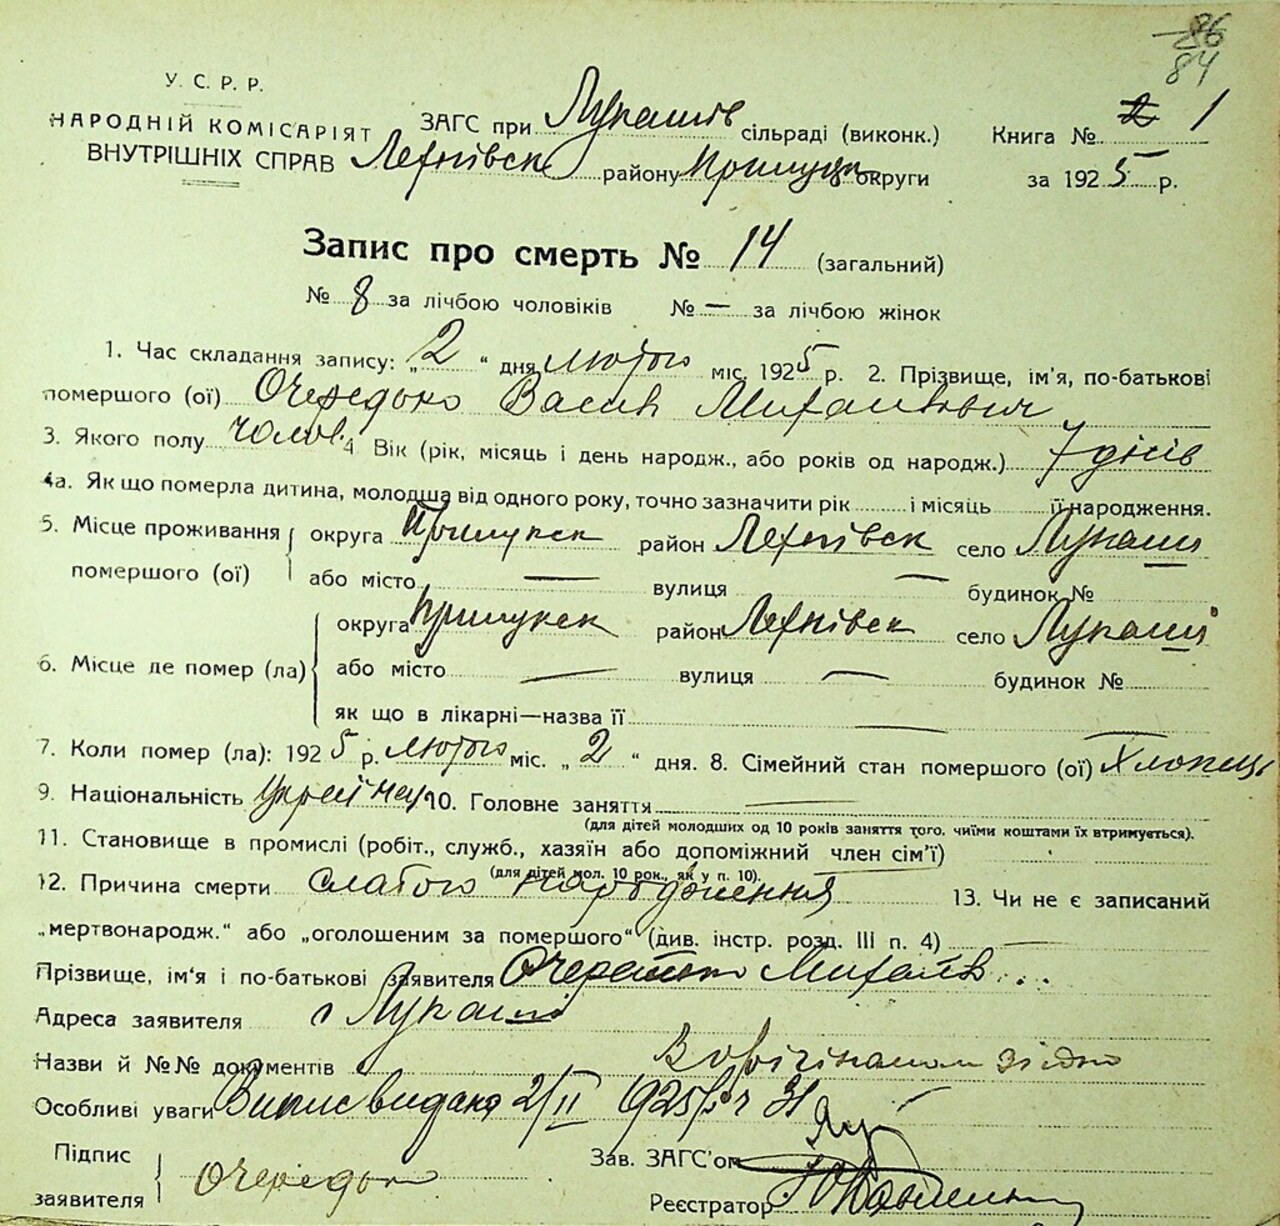 86
84
У. С. Р. Р.
НАРОДНІЙ КОМІСАРІЯТ
ВНУТРІШНІХ СПРАВ
ЗАГС при Лукашів сільраді (виконк.)
Леднівськ району Прилуцьк округи
Книга № 1
за 1925 р.
Запис про смерть № 14 (загальний)
№ 8 за лічбою чоловіків № — за лічбою жінок
1. Час складання запису: „2“ дня лютого міс. 1925 р. 2. Прізвище, ім'я, по-батькові
помершого (ої) Очередько Василь Михайлович
3. Якого полу чолов. 4 Вік (рік, місяць і день народж., або років од народж.) 7 днів
4а. Як що померла дитина, молодша від одного року, точно зазначити рік і місяць її народження.
5. Місце проживання помершого (ої) округа Прилукск район село Лукаші
або місто — вулиця — будинок №
6. Місце де помер (ла) округа Прилукск район село Лукаші
або місто — вулиця — будинок №
як що в лікарні—назва її —
7. Коли помер (ла): 1925 р. лютого міс. „2“ дня. 8. Сімейний стан помершого (ої) Хлопець
9. Національність 10. Головне заняття —
(для дітей молодших од 10 років заняття того, чиїми коштами їх втримується).
11. Становище в промислі (робіт., служб., хазяїн або допоміжний член сім'ї)
(для дітей мол. 10 рок., як у п. 10).
12. Причина смерти слабого народження 13. Чи не є записаний
„мертвонародж.“ або „оголошеним за помершого“ (див. інстр. розд. III п. 4) —
Прізвище, ім'я і по-батькові заявителя Михайло
Адреса заявителя с Лукаші
Назви й №№ документів З оригіналом згідно
Особливі уваги Випис видана 2/II 1925 р 31
Підпис заявителя Очередько
Зав. ЗАГС'ом
Реєстратор